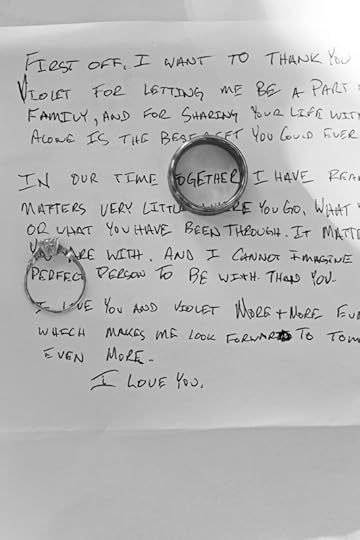 FIRST OFF, I WANT TO THANK YOU
VIOLET FOR LETTING ME BE A PART
FAMILY, AND FOR SHARING YOUR LIFE WITH
ALONE IS THE BEST GIFT YOU COULD EVER
IN OUR TIME TOGETHER I HAVE
MATTERS VERY LITTLE WHERE YOU GO, WHAT
OR WHAT YOU HAVE BEEN THROUGH. IT
YOU ARE WITH. AND I CANNOT IMAGINE
PERFECT PERSON TO BE WITH. THAN YOU.
I LOVE YOU AND VIOLET MORE + MORE
WHICH MAKES ME LOOK FORWARD TO
EVEN MORE.
I LOVE YOU.